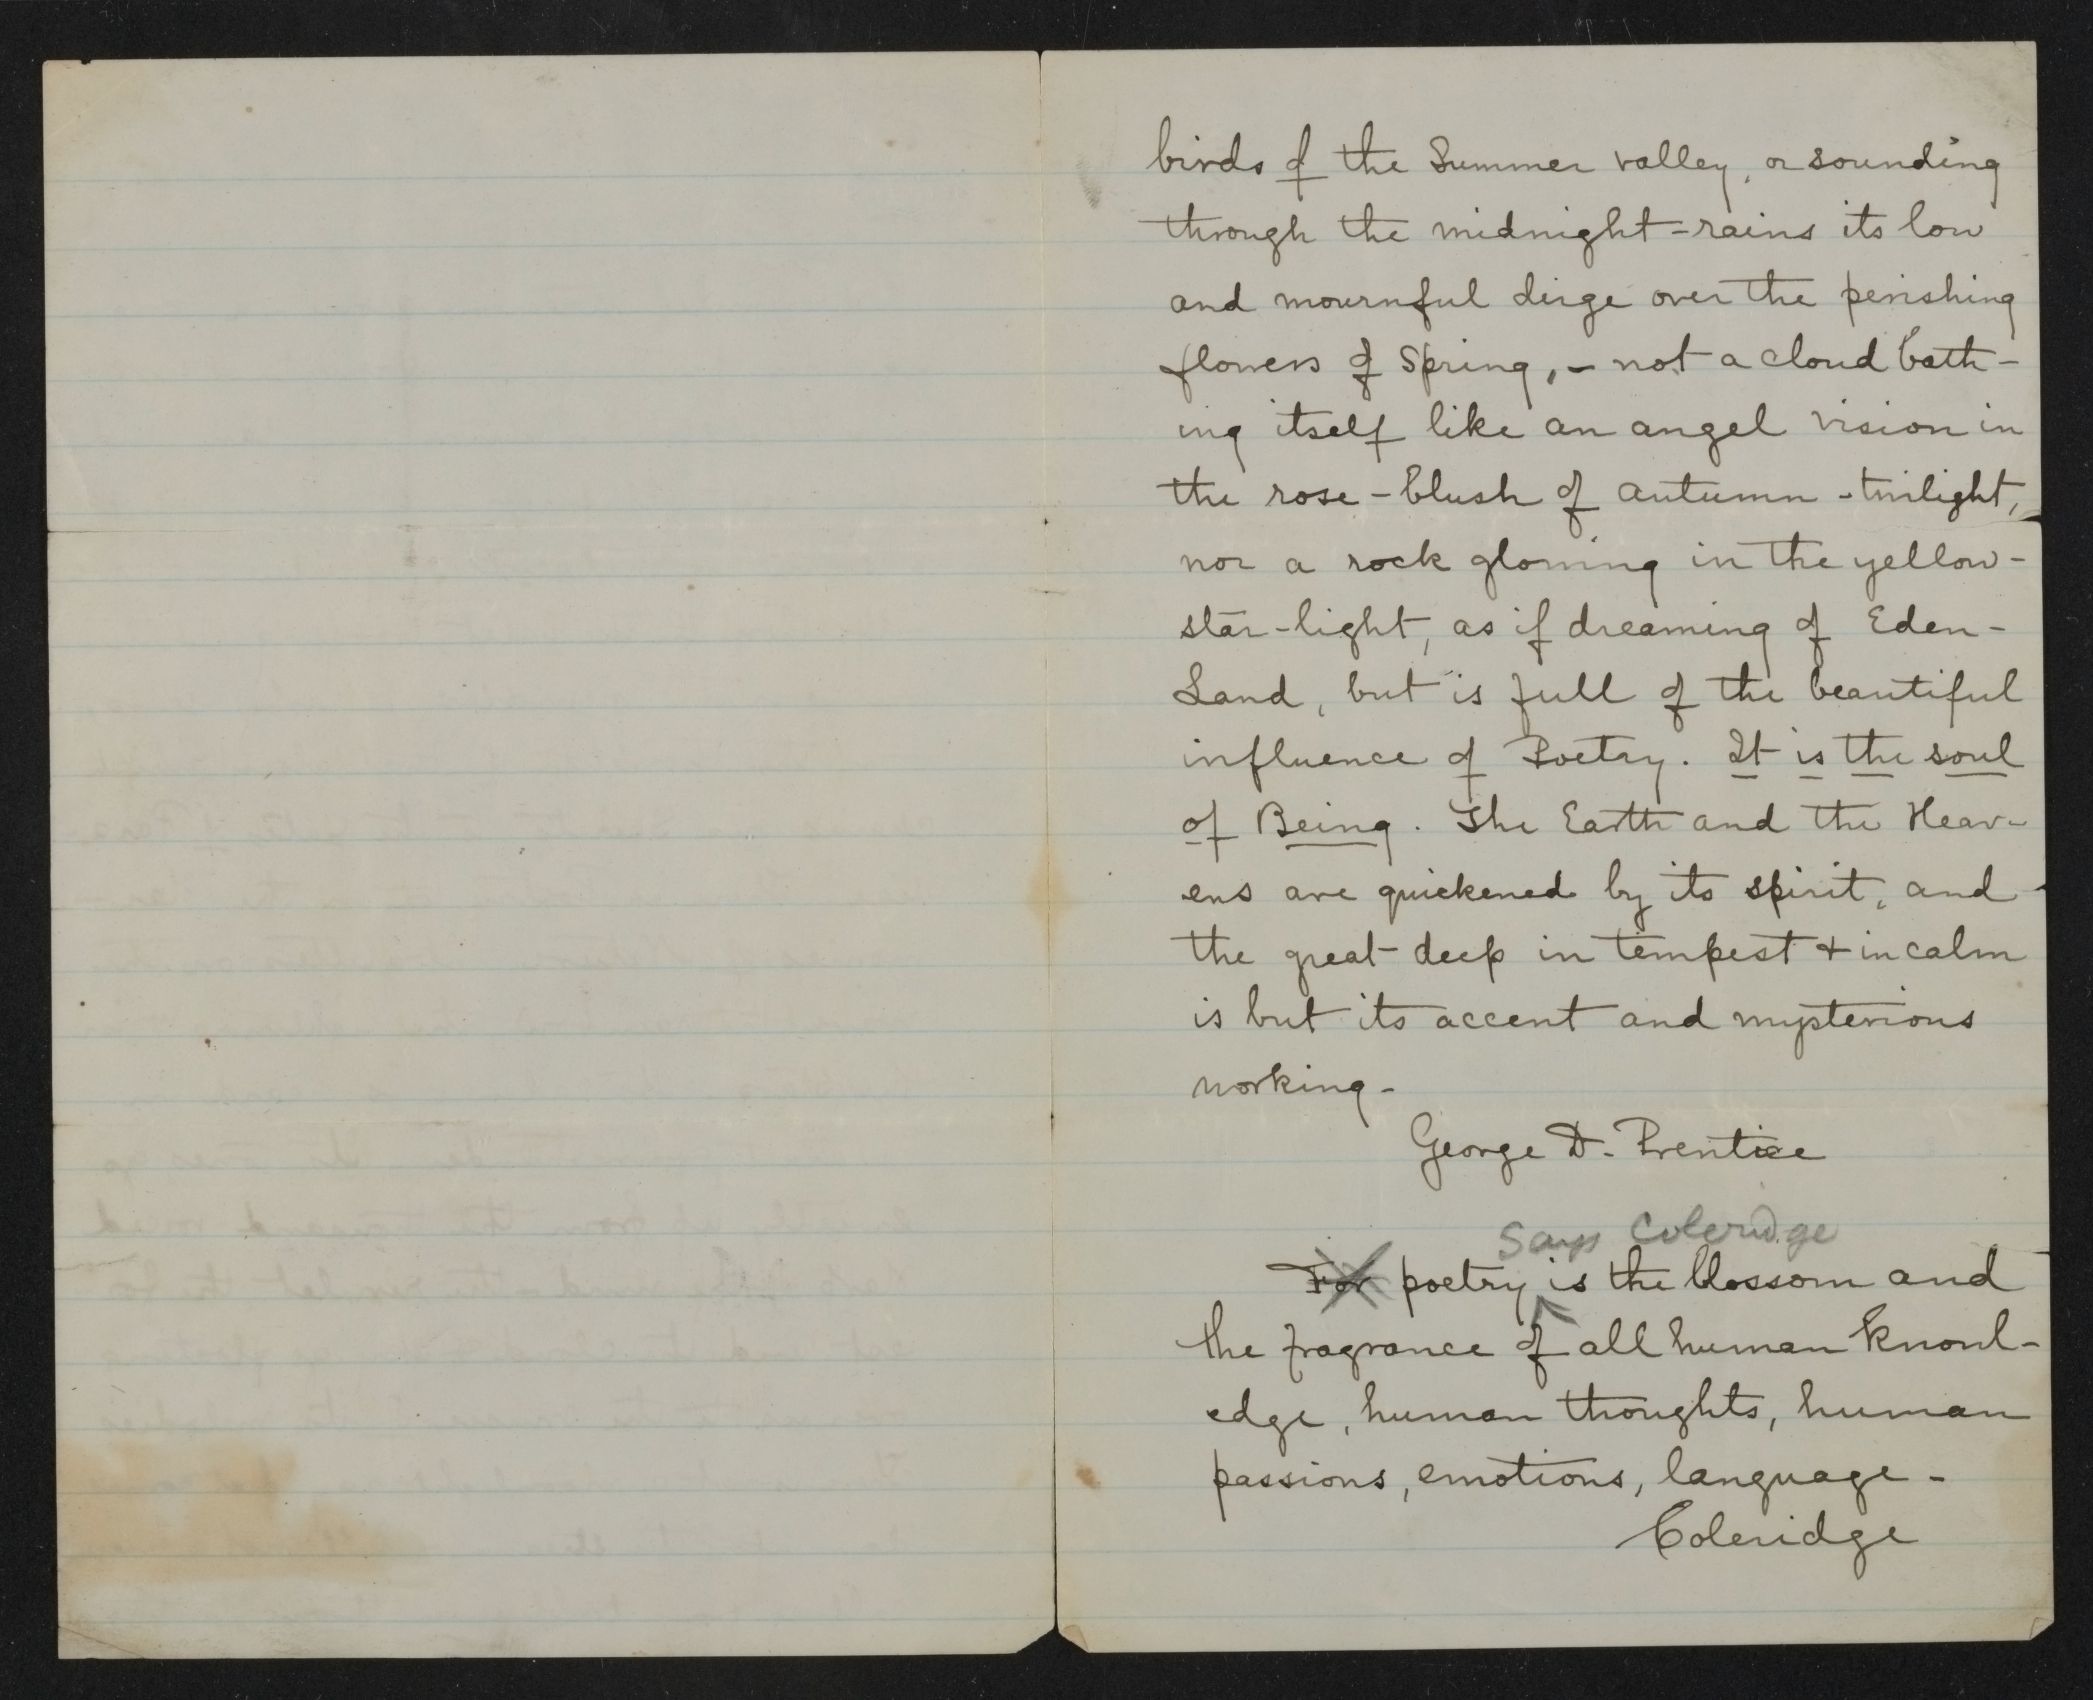 birds of the Summer valley, or sounding
through the midnight-rains its low
and mournful dirge over the perishing
flowers of Spring, - not a cloud bath-
ing itself like an angel vision in
the rose-blush of autumn-twilight,
nor a rock glowing in the yellow-
star-light, as if dreaming of Eden-
Land, but is full of the beautiful
influence of Poetry. It is the soul
of Being. The Earth and the Heav-
ens are quickened by its spirit, and
the great deep in tempest + in calm
is but its accent and mysterious
working-
George D. Prentice
says Coleridge
For poetry is the blossom and
the fragrance of all human knowl-
edge, human thoughts, human
passions, emotions, language-
Coleridge